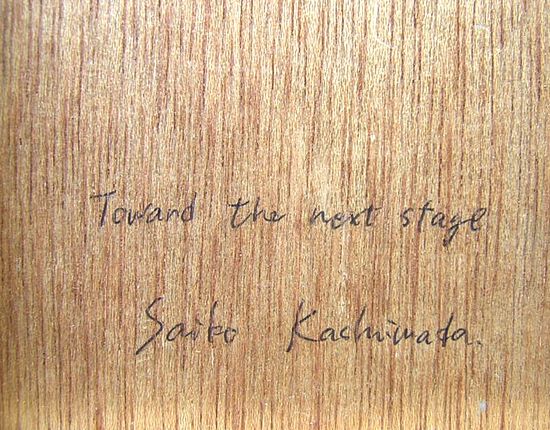 Toward the next stage
Saiko Kachiwada.